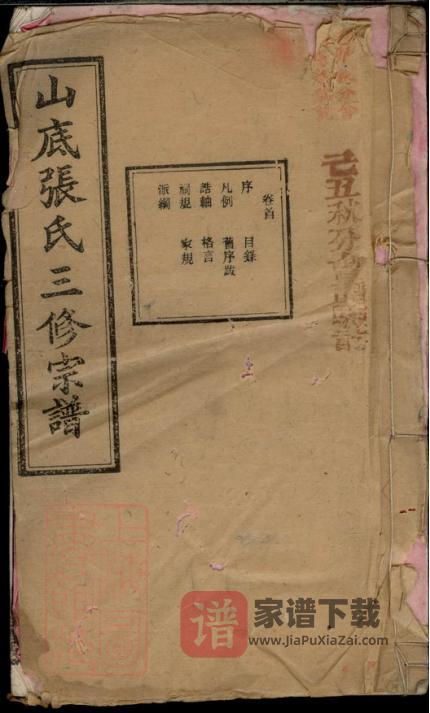 山底張氏三修宗譜
卷首
序 目錄
凡例 舊序跋
誥軸 格言
祠規 家規
派綱
己丑秋分
谱
家谱下载
www.JiaPuXiaZai.com